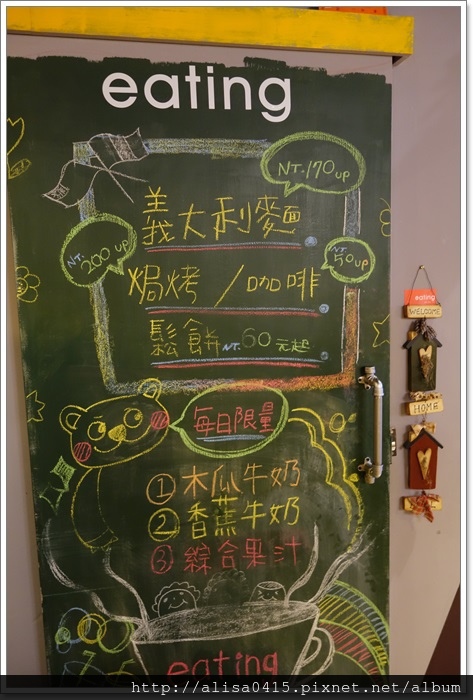 eating
NT.170 up
義大利麵
NT.200 up
NT.50 up
焗烤/咖啡
鬆餅 NT.60元起
eating
WELCOME
HOME
每日限量
①木瓜牛奶
②香蕉牛奶
③綜合果汁
eating
http://alisa0415.pixnet.net/album